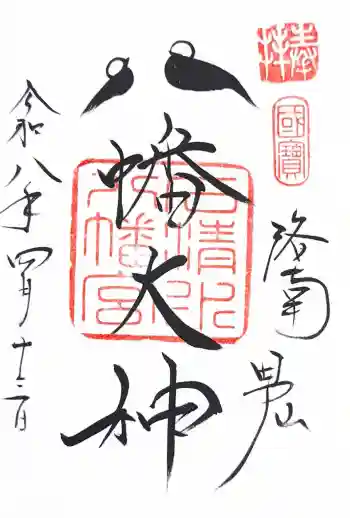 奉拝
國寶
洛南
男山
八幡大神
石清水
八幡宮
令和八年四月十三日